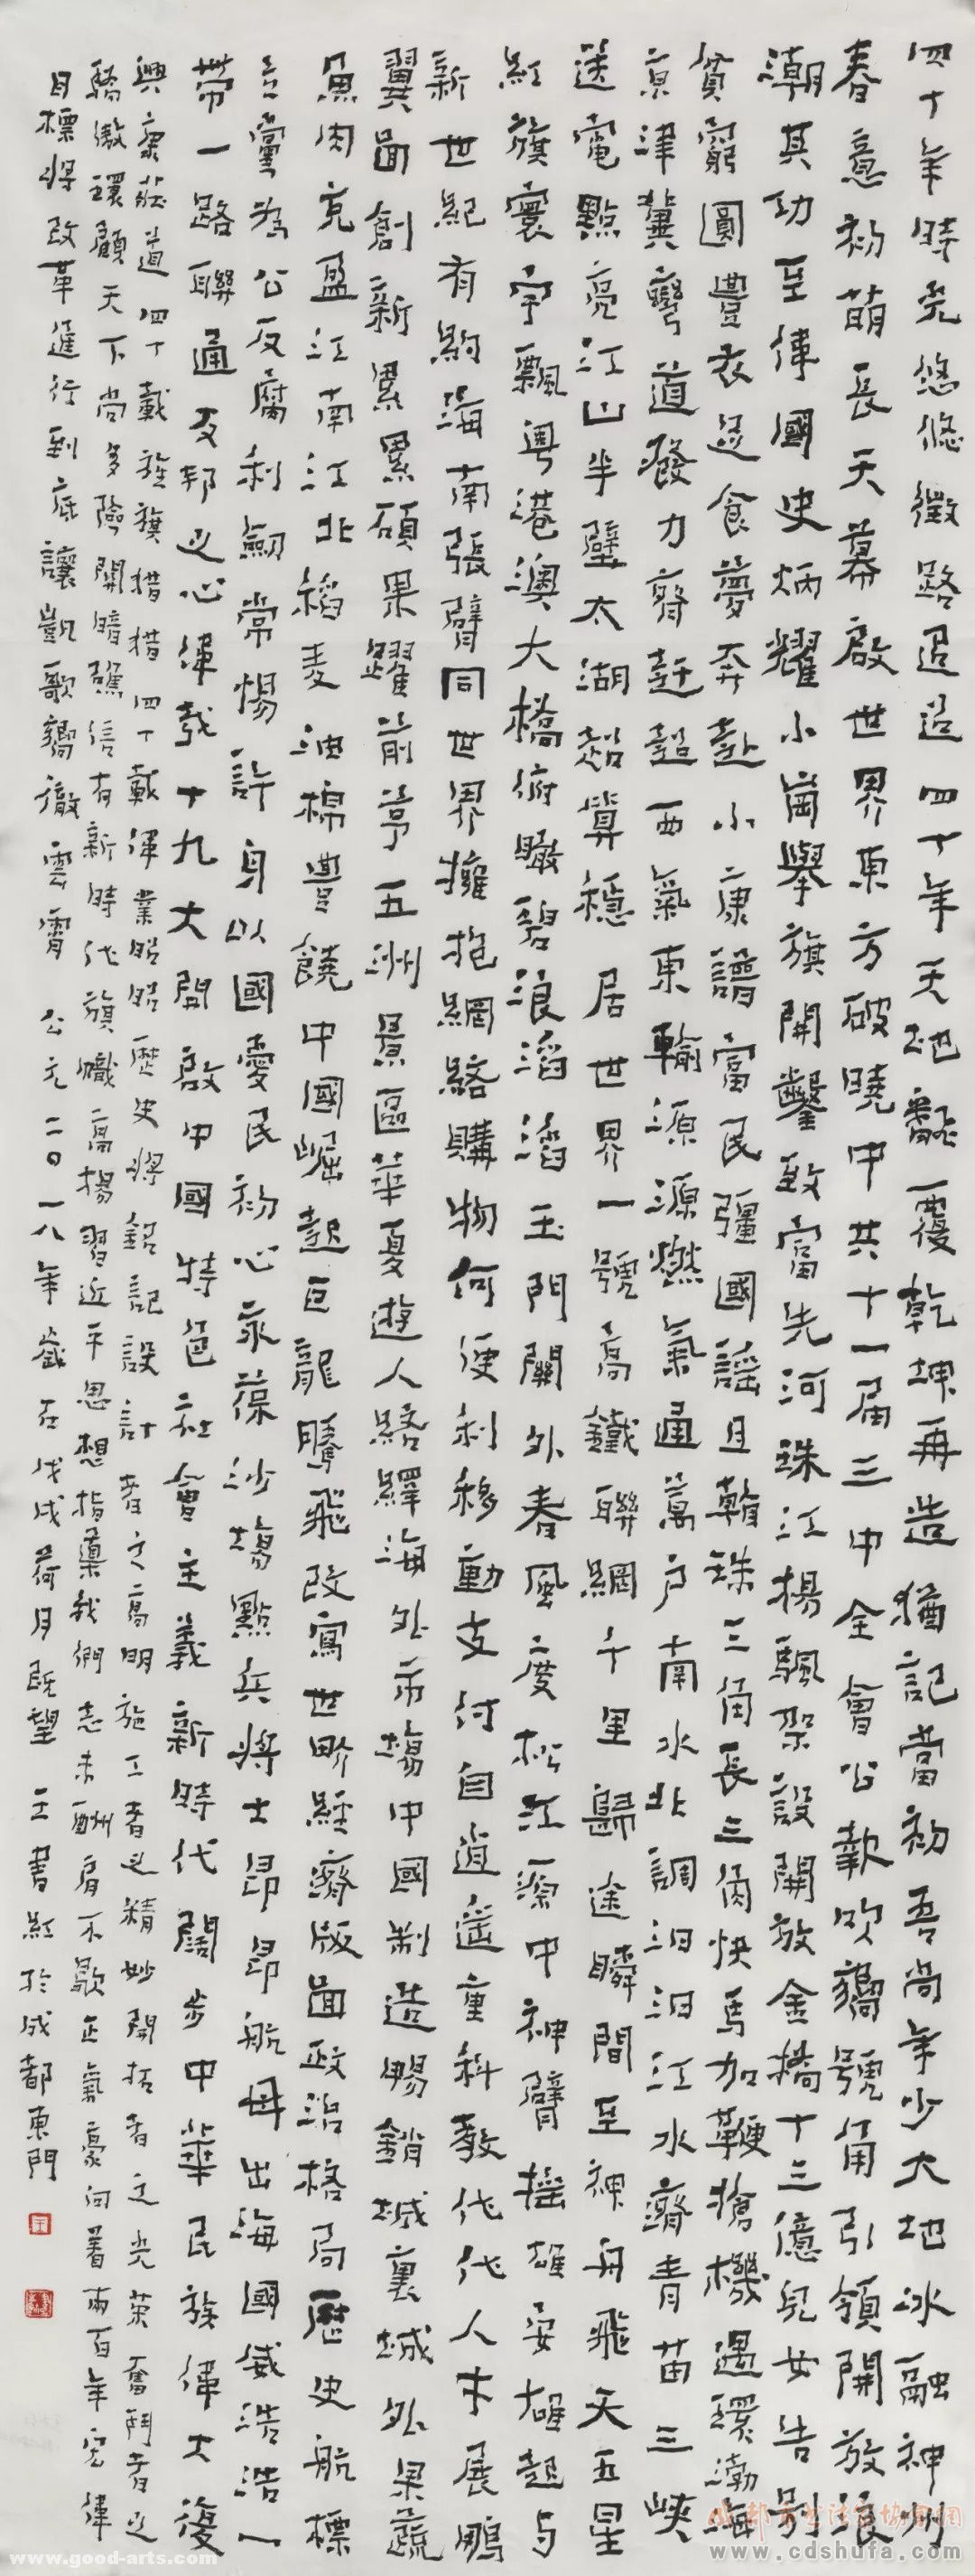 四十年時光悠悠徵路迢迢四十年天地翻覆乾坤再造猶記當初吾尚年少大地冰融神州
春意初萌長天幕啟世界東方破曉中共十一屆三中全會公報吹響號角引領開放浪
潮其功至偉國史炳耀小崗舉旗開鑿致富先河珠江揚颿架設開放金橋十三億兒女告別
貧窮圓豐衣足食夢奔赴小康譜富民疆國謠且翰珠三角長三角快馬加鞭搶機遇環渤海
京津冀彎道發力齊赶超西氣東輸源源燃氣通萬戶南水北調汩汩江水濟青苗三峽
送電點亮江山半壁太湖超算穩居世界一號高鐵聯網千里歸途瞬間至神舟飛天五星
紅旗寰宇飄粵港澳大橋俯瞰碧浪滔滔玉門關外春風度松江源中神臂搖雄安雄起与
新世紀有約海南張臂同世界擁抱網絡購物何便利移動支付自逍遙重科教代代人才展鵬
翼圖創新累累碩果躍前茅五洲景區華夏遊人絡繹海外市場中國制造暢銷城裏城外果蔬
魚肉充盈江南江北稻麦油棉豐饒中國崛起巨龍騰飛改寫世界經濟版圖政治格局歷史航標
立黨為公反腐利劍常惕許身以國愛民初心永葆沙場點兵將士昂昂航母出海國威浩浩一
帶一路聯通友邦之心偉哉十九大開啟中國特色社會主義新時代闊步中華民族偉大復
興康莊道四十載旌旗獵獵四十載偉業昭昭歷史將銘記設計者之高明施工者之精妙開拓者之光榮奮鬥者之
驕傲環顧天下尚多險關暗礁信有新時代旗幟高揚習近平思想指稾我們志未酬肩不歇正氣豪向着兩百年宏偉
目標將改革進行到底讓凱歌響徹雲霄 公元二〇一八年歲在戊戌荷月既望 王書紅於成都東門
成都市書法家協會網
www.cdshufa.com
www.good-arts.com